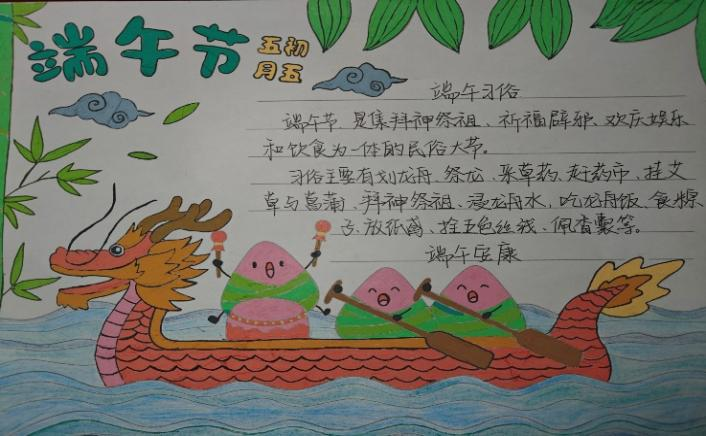 端午节
五初
月五
端午习俗
端午节,是集拜神祭祖、祈福辟邪、欢庆娱乐
和饮食为一体的民俗大节。
习俗主要有划龙舟、祭龙、采草药、赶药市、挂艾
草与菖蒲、拜神祭祖、浸龙舟水,吃龙舟饭、食粽
子、放纸鸢、拴五色丝线、佩香囊等。
端午安康